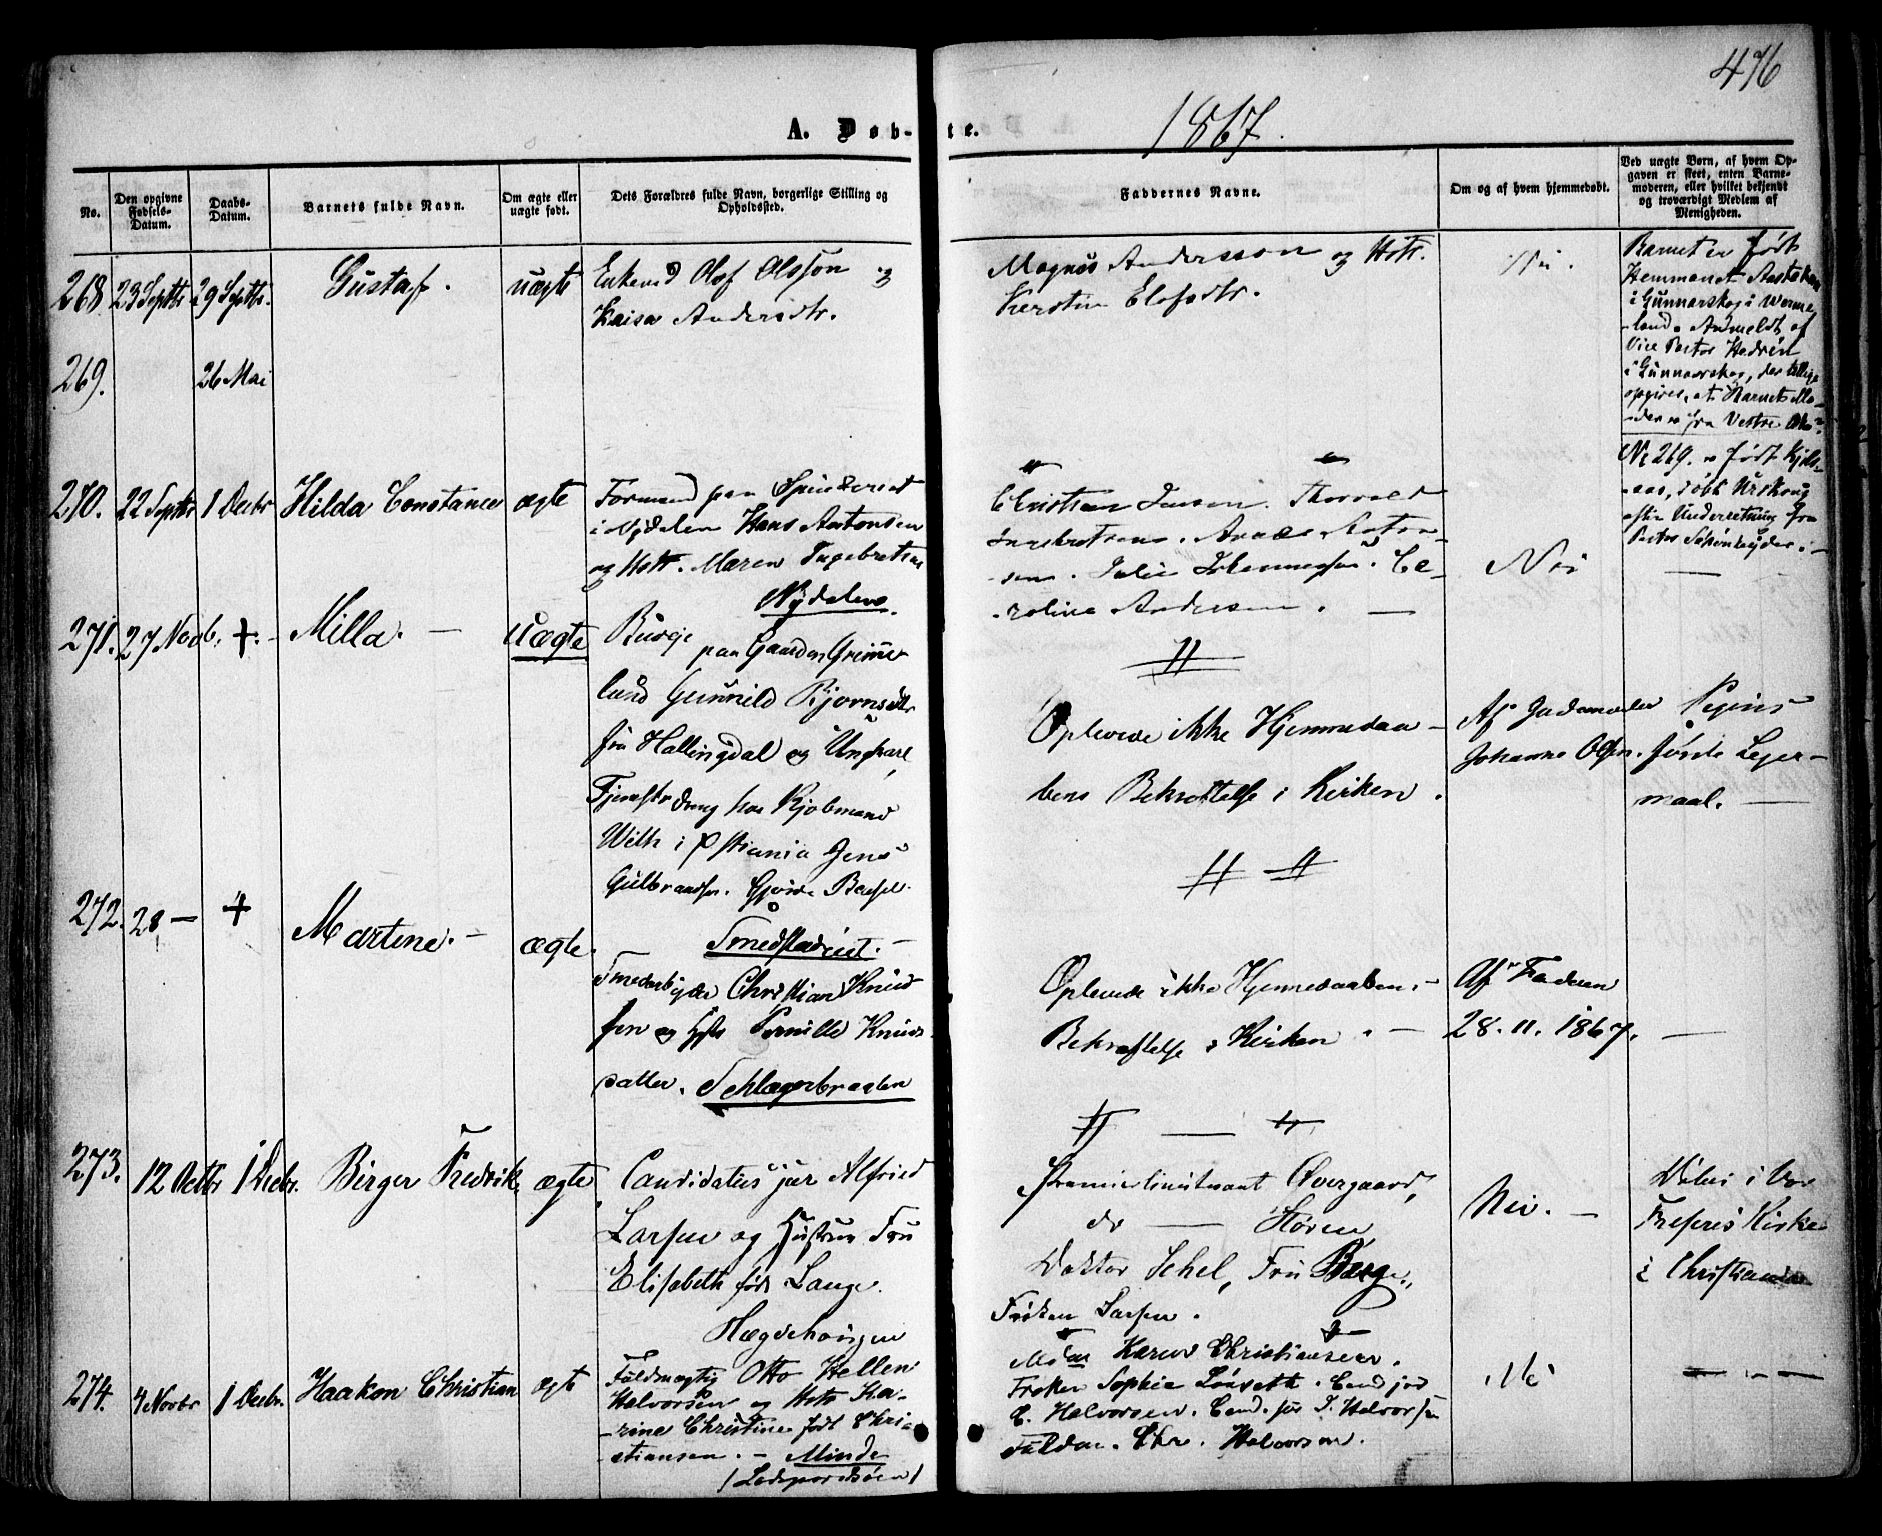 476
A. Døb-te.
1867.
No.
Den opgivne Fødsels-Datum.
Daabs-Datum.
Barnets fulde Navn.
Om ægte eller uægte født.
Dets Forældres fulde Navn, borgerlige Stilling og Opholdssted.
Faddernes Navne.
Om og af hvem hjemmedøbt.
Ved uægte Børn, af hvem Op-
gaven er skeet, enten Barne-
moderen, eller hvilket bekjendt
og troværdigt Medlem af
Menigheden.
268. 23 Septbr 29 Septbr. Gustaf. uægte
Enkemd Olof Olsson og
Kaisa Andersdtr.
Magnus Andersson og Hstr.
Kerstin Elofsdtr.
Nei.
Barnet er født
i Gunnarskog i Werme-
land. Anmeldt af
Vice Pastor Hedrén
i Gunnarskog, der tillige
opgiver, at Barnets Mo-
der er fra Vestre Aker
269. 26 Mai
Nr 269. er født
Urskoug
efter Underretning fra
Pastor
270. 22 Septbr 1 Decbr Hilda Constance ægte
Formand paa Spinderiet
i Nydalen Hans Antonsen
og Hstr. Maren Ingebretsen
Nydalen.
Christian Jensen. Thorvald
Ingebretsen. Anton-
sen. Julie Johannessen. Ca-
roline Andersen. —
Nei
—
271. 27 Novb. +. - Milla. — Uægte
Budeje
paa Gaarden Grime-
lund Gunnild Bjørnsdtr
fra Hallingdal og Ungkarl,
Tjenestedreng hos Kjøbmand
Wilh i Xstiania Jens
Gulbrandsen.
Smedstadeiet. —
Oplevede ikke Hjemmedaa-
bens Bekræftelse i Kirken.
Af Jordmoder
Johanne Olsen.
Pigens
første Leier-
maal. —
272. 28 — + Martine. — ægte.
Christian Knud-
sen og Hstr Pernille Knuds-
datter. Schlagerbraaten
Oplevede ikke Hjemmedaabens
Bekræftelse i Kirken. —
Af Faderen
28. 11. 1867.
—
273. 12 Octbr 1 Decbr. Birger Fredrik ægte
Candidatus jur Alfried
Larsen og Hustru Fru
Elisabeth født Lange.
Hægdehougen
Premierlieutenant Overgaard,
do — Høven
Doktor Schel, Fru Berg,
Frøken Larsen.
Nei. —
Døbt i Vor
Frelsers Kirke
i Christiania
274. 4 Novbr 1 Decbr. Haakon Christian ægte
Fuldmægtig Otto Hellen
Halvorsen og Hstr Ka-
rine Christine født Chri-
stiansen. — Minde
Mdm Karen Christiansen.
Frøken Sophie Løvseth. Cand jur
C. Halvorsen. Cand. jur J. Halvorsen
Chr. Halvorsen.
Nei
— — —